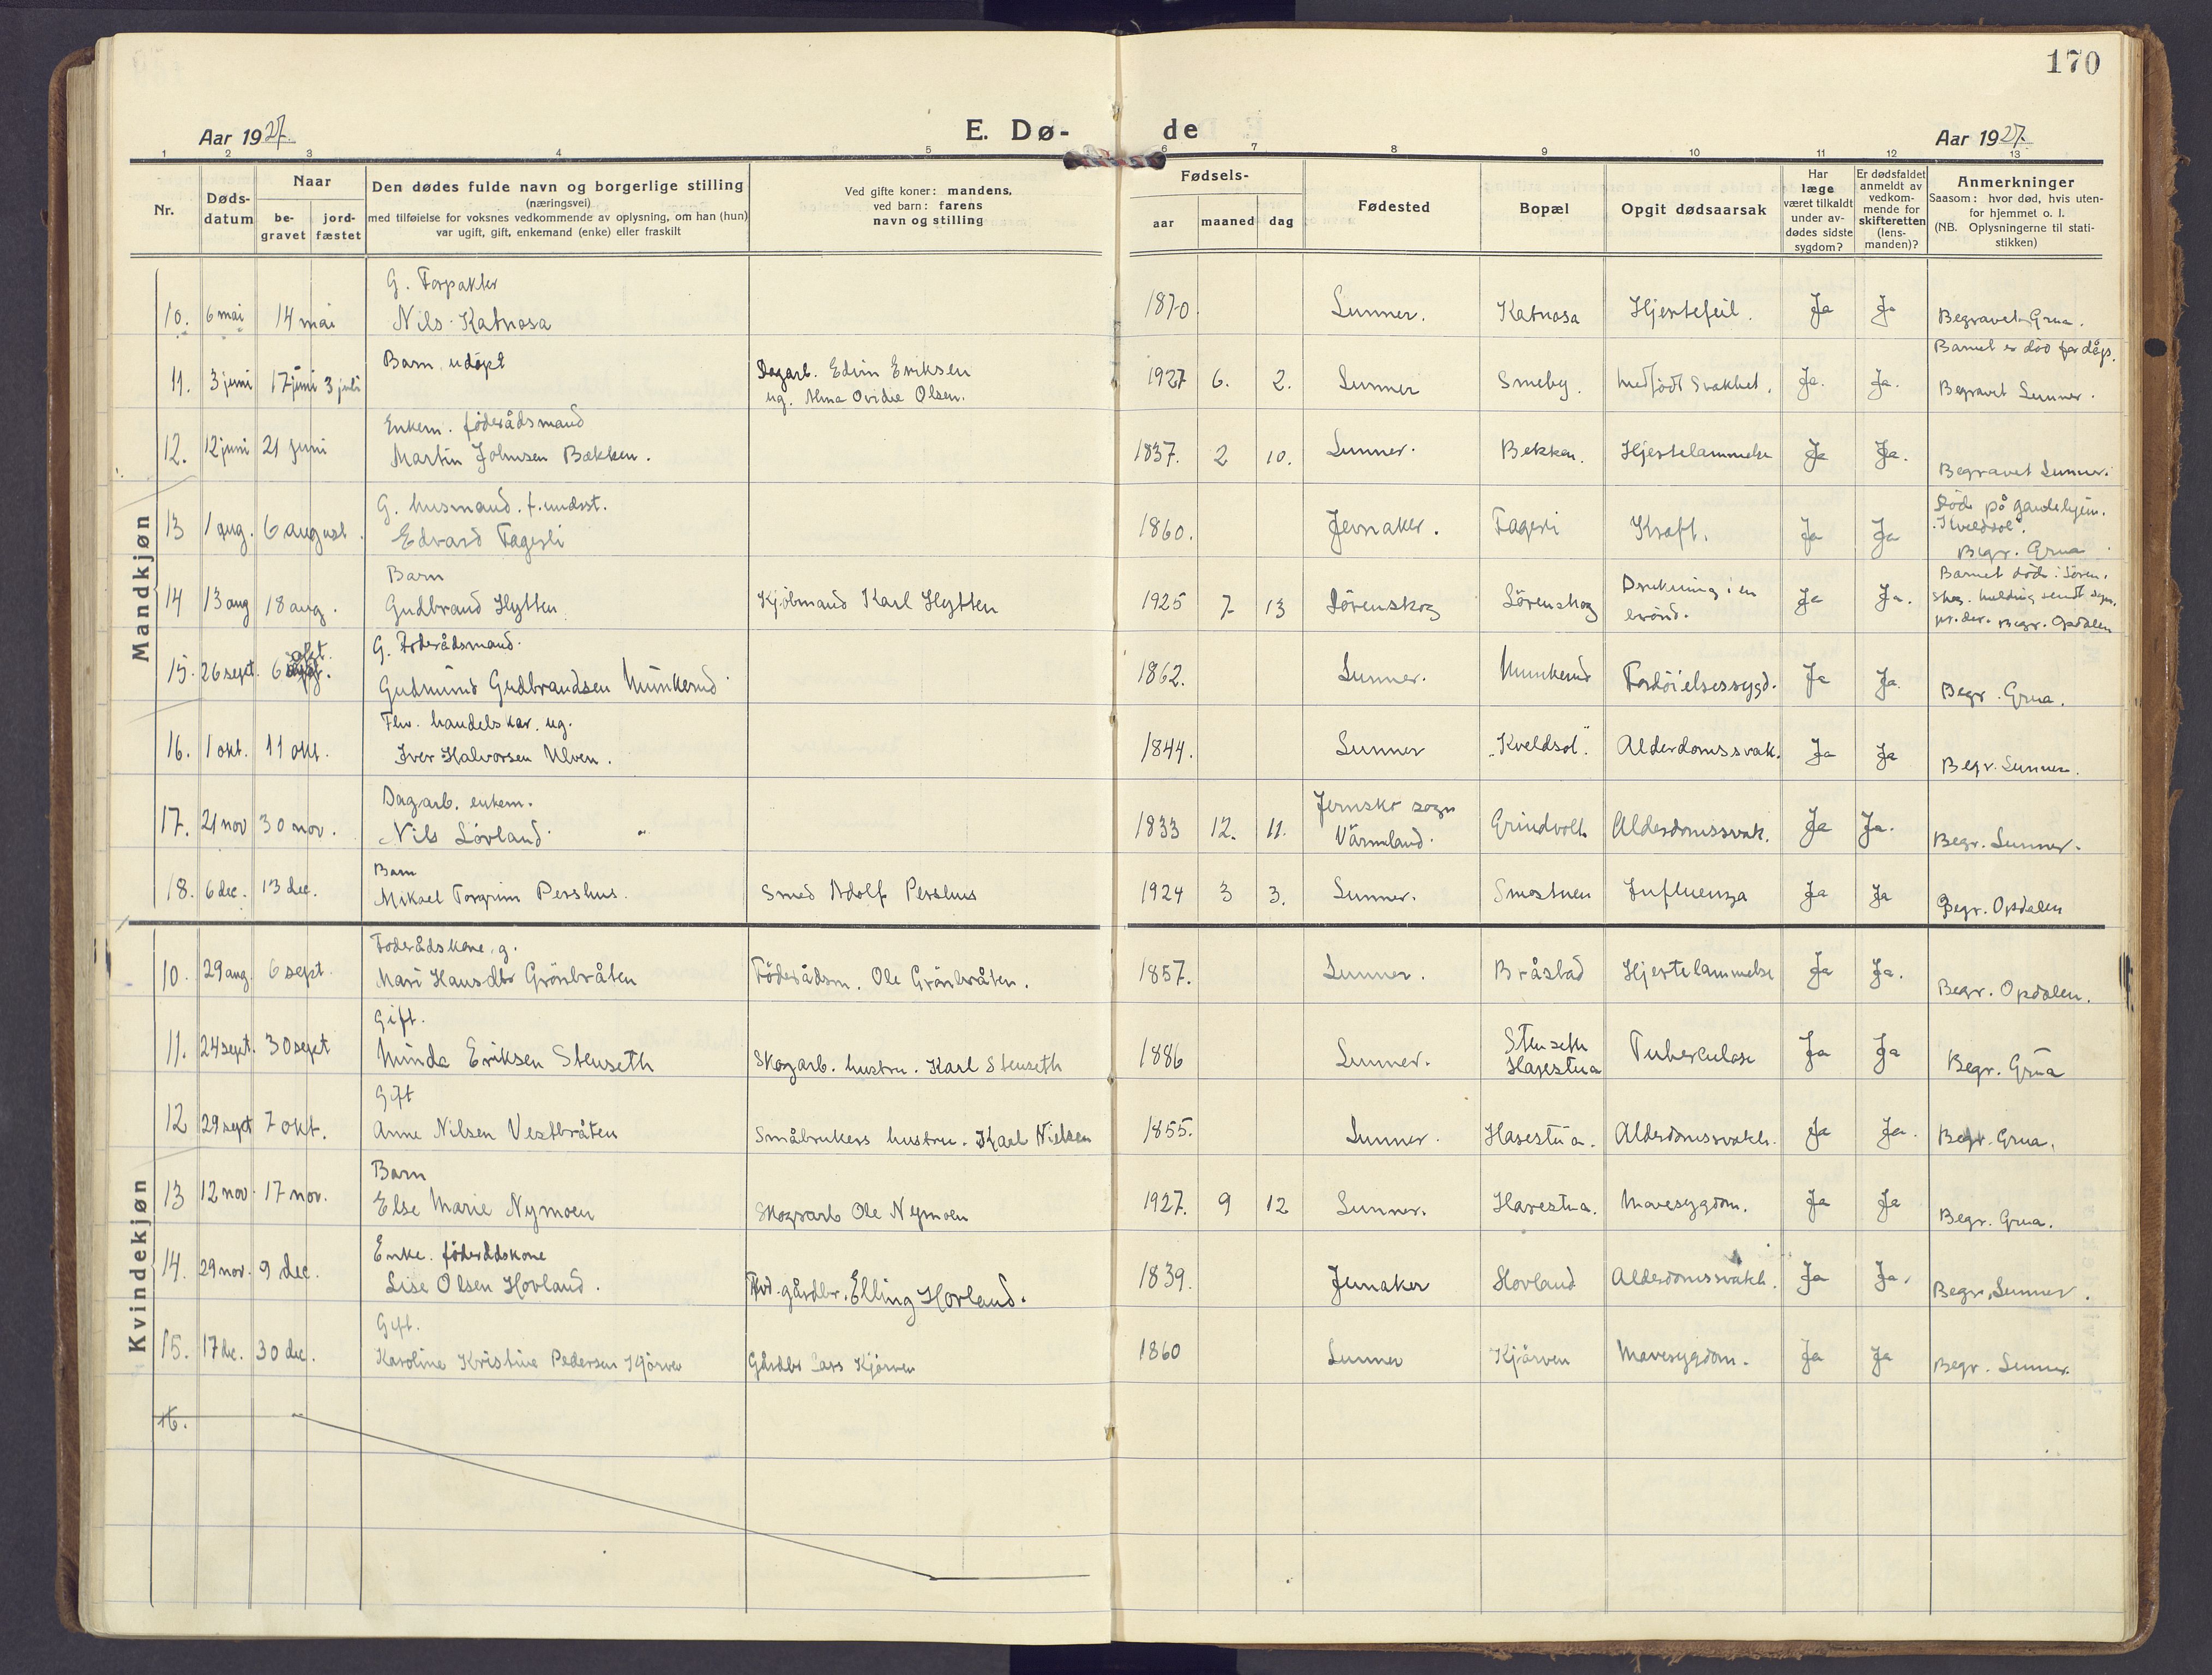 170
Aar 1927.
E. Dø-
de
Aar 1927.
1 2 3 4 5 6 7 8 9 10 11 12 13
Nr.
Døds-
datum
Naar
be-
gravet
jord-
fæstet
Den dødes fulde navn og borgerlige stilling
(næringsvei)
med tilføielse for voksnes vedkommende av oplysning, om han (hun)
var ugift, gift, enkemand (enke) eller fraskilt
Ved gifte koner: mandens,
ved barn: farens
navn og stilling
Fødsels-
aar
maaned
dag
Fødested
Bopæl
Opgit dødsaarsak
Har
læge
været tilkaldt
under av-
dødes sidste
sygdom?
Er dødsfaldet
anmeldt av
vedkom-
mende for
skifteretten
(lens-
manden)?
Anmerkninger
Saasom: hvor død, hvis uten-
for hjemmet o. l.
(NB. Oplysningerne til stati-
stikken)
Mandkjøn
G. Forpakter
10. 6 mai 14 mai Nils Katnosa 1870. Lunner. Katnosa Hjertefeil. Ja Ja Begravet Grua.
Barnet er død før dåps.
Barn, udøpt Dagarb. Edvin Eriksen
11. 3 juni 17 juni 3 juli ug. Alma Ovidie Olsen. 1927 6. 2. Lunner Smeby. Medfødt svakhet. Ja. Ja. Begravet Lunner.
Enkem. föderådsmand
12. 12 juni 21 juni Martin Johnsen Bækken. 1837. 2 10. Lunner. Bekken. Hjertelammelse Ja Ja. Begravet Lunner.
G. husmand. f. underst. Död på gamlehjem.
13 1 aug. 6 august. Edvard Fagerli 1860. Jevnaker. Fagerli Kræft. Ja Ja "Kveldsol".
Begr. Grua
Barn Barnet död i Sören-
14 13 aug 18 aug. Gudbrand Hytten Kjöbmand Karl Hytten 1925 7 13 Sörenskog Sörenskog Drukning i en Ja Ja. skog. melding sendt
brönd. Begr. Opdalen
G. Föderådsmand.
15. 26 sept. 6 okt. Gudmund Gudbrandsen Munkerud 1862. Lunner. Munkerud Fordöielsessygd. Ja Ja. Begr. Grua.
Fhv. handelskar. ug.
16. 1 okt. 11 okt. Iver Halvorsen Ulven. 1844. Lunner "Kveldsol". Alderdomssvak. Ja Ja Begr. Lunner.
Dagarb. enkem. Jernskr sogn
17. 21 nov 30 nov. Nils Lövland 1833 12. 11. Värmland. Grindvoll Alderdomssvak. Ja Ja. Begr. Lunner.
Barn
18. 6 dec. 13 dec. Mikael Torgrim Pershus. Smed Adolf Pershus 1924 3 3. Lunner. Smestuen Influenza Ja Ja Begr. Opdalen
Kvindekjøn
Foderådskone. g.
10. 29 aug. 6 sept. Mari Hansdtr Grönbråten Föderådsm. Ole Grönbråten. 1857. Lunner. Bråstad Hjertelammelse Ja Ja. Begr. Opdalen.
Gift. Stenseth
11. 24 sept. 30 sept Minda Eriksen Stenseth Skogarb. hustru. Karl Stenseth 1886 Lunner. Harestua Tuberkulose Ja Ja Begr. Grua
Gift
12 29 sept 7 okt. Anne Nilsen Vestbråten Småbrukers hustru. Karl Nielsen 1855. Lunner. Harestua. Alderdomssvakh. Ja Ja. Begr. Grua.
Barn
13 12 nov. 17 nov. Else Marie Nymoen Skogsarb Ole Nymoen 1927. 9 12 Lunner. Harestua. Mavesygdom. Ja Ja Begr. Grua.
Enke. föderådskone
14. 29 nov. 9 dec. Lise Olsen Hovland. gårdbr. Elling Hovland. 1839. Jevnaker Hovland Alderdomssvakh. Ja Ja. Begr. Lunner.
Gift.
15. 17 de. 30 dec. Karoline Kristine Pedersen Kjörven Gårdbr Lars Kjörven 1860 Lunner Kjörven Mavesygdom. Ja Ja Begr. Lunner.
16.